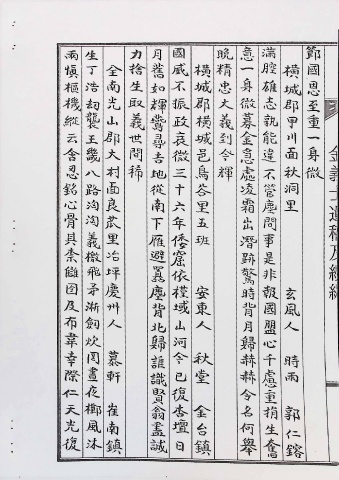 節國恩至重一身微
橫城郡甲川面秋洞里 玄風人 時雨 郭仁鎔
滿腔雄志孰能違不管塵間事是非報國盟心千慮重捐生奮
意一身微募金急處凌霜出潛跡驚時背月歸赫赫令名何擧
晩精忠大義到今輝
橫城郡橫城邑鳥谷里五班 安東人 秋堂 金台鎭
國威不振政衰微三十六年倭窟依槿域山河今已復杏壇日
月舊如輝鶯尋古地從南下雁避羅塵背北歸誰識賢翁盡誠
力捨生取義世間稀
全南光山郡大村面良苽里冶坪慶州人 慕軒 崔南鎭
生丁浩劫襲王畿八路洶洶義檄飛矛淅劒炊罔晝夜櫛風沐
雨愼樞機縱云含忍銘心骨其柰雠圖及布韋幸際仁天光復
金義士遺稿及經緯